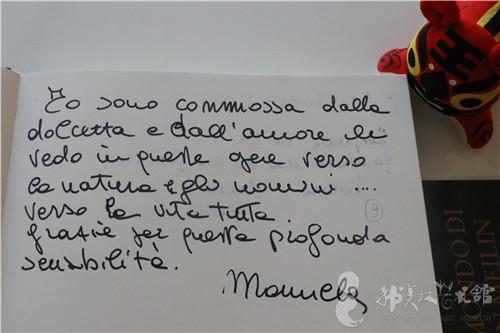 Io sono commossa dalla
dolcezza e dall'amore che
vedo in queste opere verso
la natura e gli uomini ....
verso la vita tutta.
grazie per questa profonda
sensibilità.
Manuela
9
MONDO DI
韩美林艺术馆
HAN MEILIN ART MUSEUM